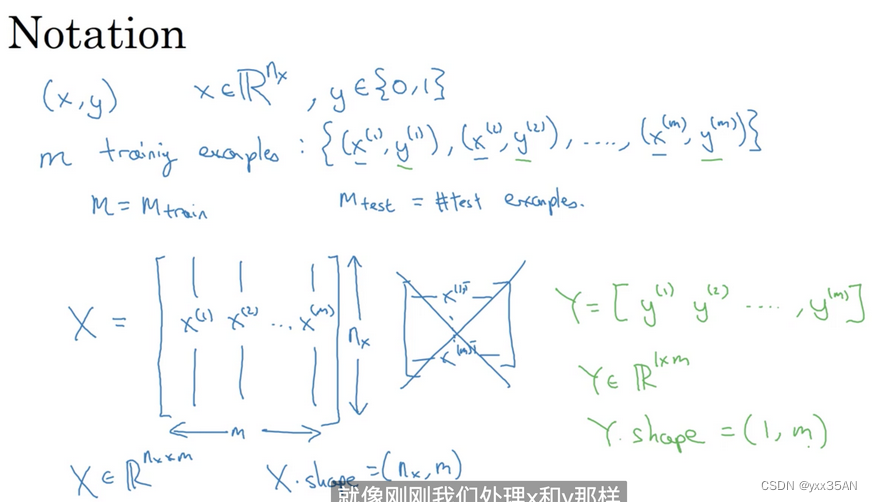 Notation
(x, y) x ∈ ℝ^{n_x}, y ∈ {0, 1}
m trainiy examples : {(x^{(1)}, y^{(1)}), (x^{(2)}, y^{(2)}), ....., (x^{(m)}, y^{(m)})}
M = M_{train} M_{test} = #test examples.
X = [ x^{(1)} x^{(2)} ... x^{(m)} ] n_x
m
x^{(1)T}
x^{(m)T}
Y = [ y^{(1)} y^{(2)} ...., y^{(m)} ]
Y ∈ ℝ^{1×m}
Y.shape = (1, m)
X ∈ ℝ^{n_x × m} X.shape = (n_x, m)
就像刚刚我们处理x和y那样
CSDN @yxx35AN